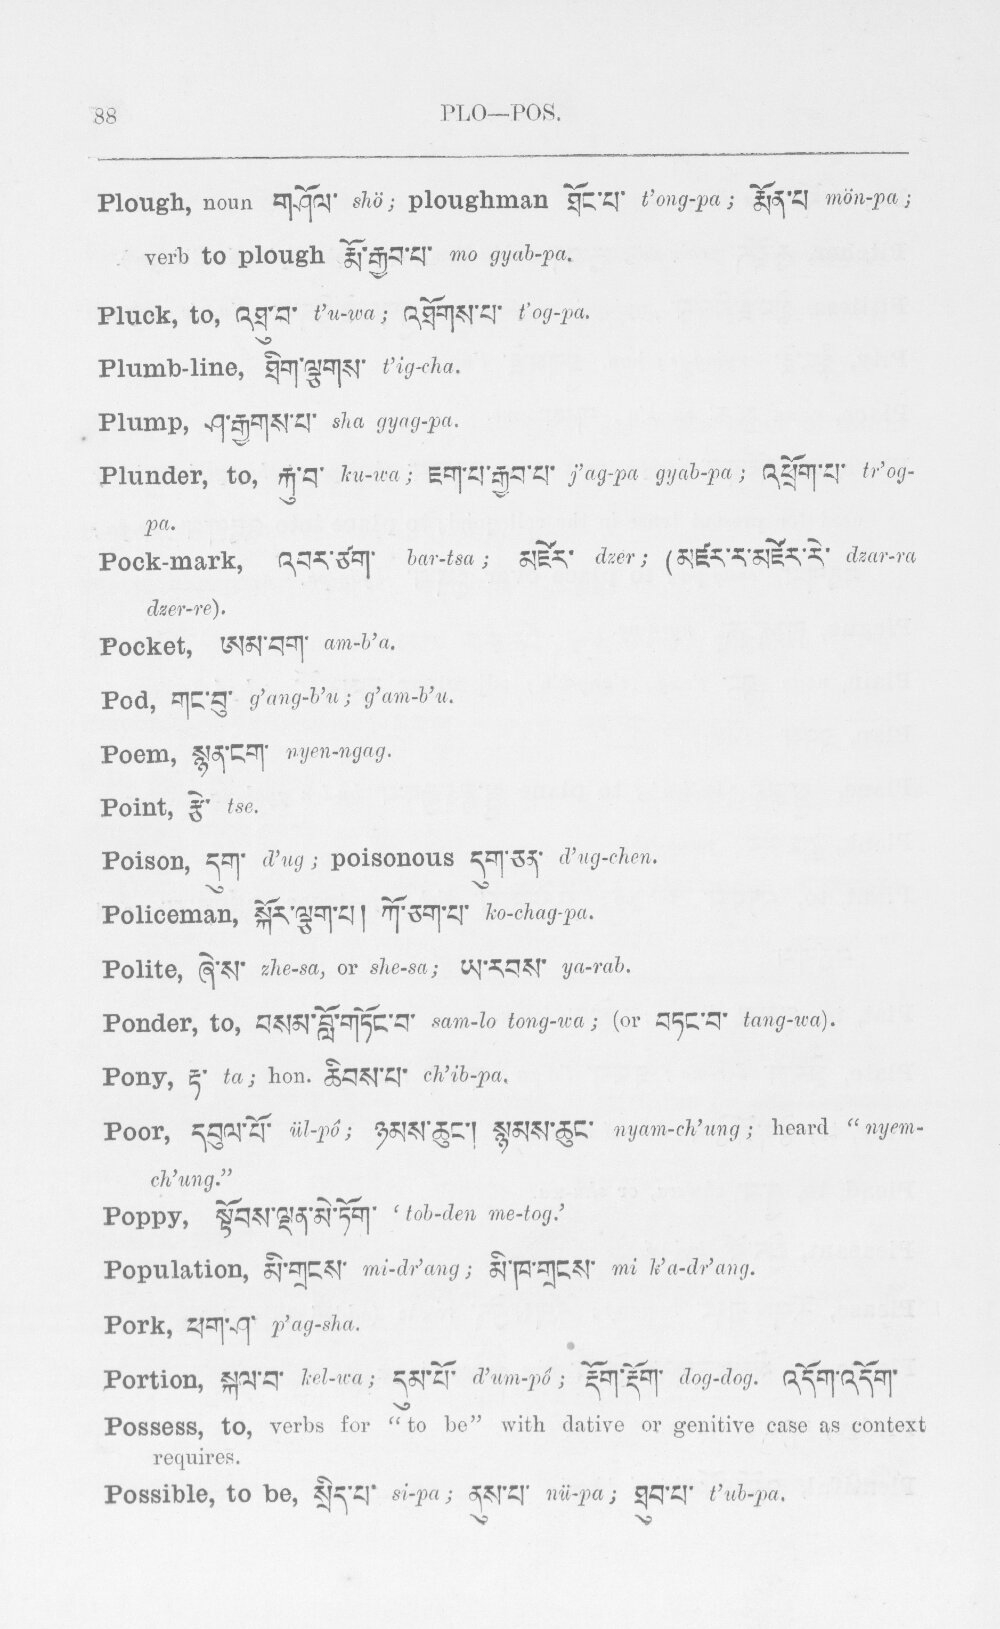 88 PLO—POS.
Plough, noun གཤོལ་ shö; ploughman ཐོང་པ་ t'ong-pa; རྨོན་པ mön-pa;
verb to plough རྨོ་རྒྱབ་པ་ mo gyab-pa.
Pluck, to, འཐུ་བ་ t'u-wa; འཐོགས་པ་ t'og-pa.
Plumb-line, ཐིག་ལྕགས་ t'ig-cha.
Plump, ཤ་རྒྱགས་པ་ sha gyag-pa.
Plunder, to, རྐུ་བ་ ku-wa; ཇག་པ་རྒྱབ་པ་ j'ag-pa gyab-pa; འཕྲོག་པ་ tr'og-
pa.
Pock-mark, འབར་ཙག་ bar-tsa; མཛེར་ dzer; (མཛར་ར་མཛེར་རེ་ dzar-ra
dzer-re).
Pocket, ཨམ་བག་ am-b'a.
Pod, གང་བུ་ g'ang-b'u; g'am-b'u.
Poem, སྙན་ངག་ nyen-ngag.
Point, རྩེ་ tse.
Poison, དུག་ d'ug; poisonous དུག་ཅན་ d'ug-chen.
Policeman, སྐོར་ལྕག་པ། ཀོ་ཅག་པ་ ko-chag-pa.
Polite, ཞེ་ས་ zhe-sa, or she-sa; ཡ་རབས་ ya-rab.
Ponder, to, བསམ་བློ་གཏོང་བ་ sam-lo tong-wa; (or བཏང་བ་ tang-wa).
Pony, རྟ་ ta; hon. ཆིབས་པ་ ch'ib-pa.
Poor, དབུལ་པོ་ ül-pó; ཉམས་ཆུང་། སྙམས་ཆུང་ nyam-ch'ung; heard “nyem-
ch'ung.”
Poppy, སྟོབས་ལྡན་མེ་ཏོག་ ‘tob-den me-tog.’
Population, མི་གྲངས་ mi-dr'ang; མི་ཁ་གྲངས་ mi k'a-dr'ang.
Pork, ཕག་ཤ་ p'ag-sha.
Portion, སྐལ་བ་ kel-wa; དུམ་པོ་ d'um-pó; རྡོག་རྡོག་ dog-dog. འདོག་འདོག་
Possess, to, verbs for “to be” with dative or genitive case as context
requires.
Possible, to be, སྲིད་པ་ si-pa; ནུས་པ་ nü-pa; ཐུབ་པ་ t'ub-pa.